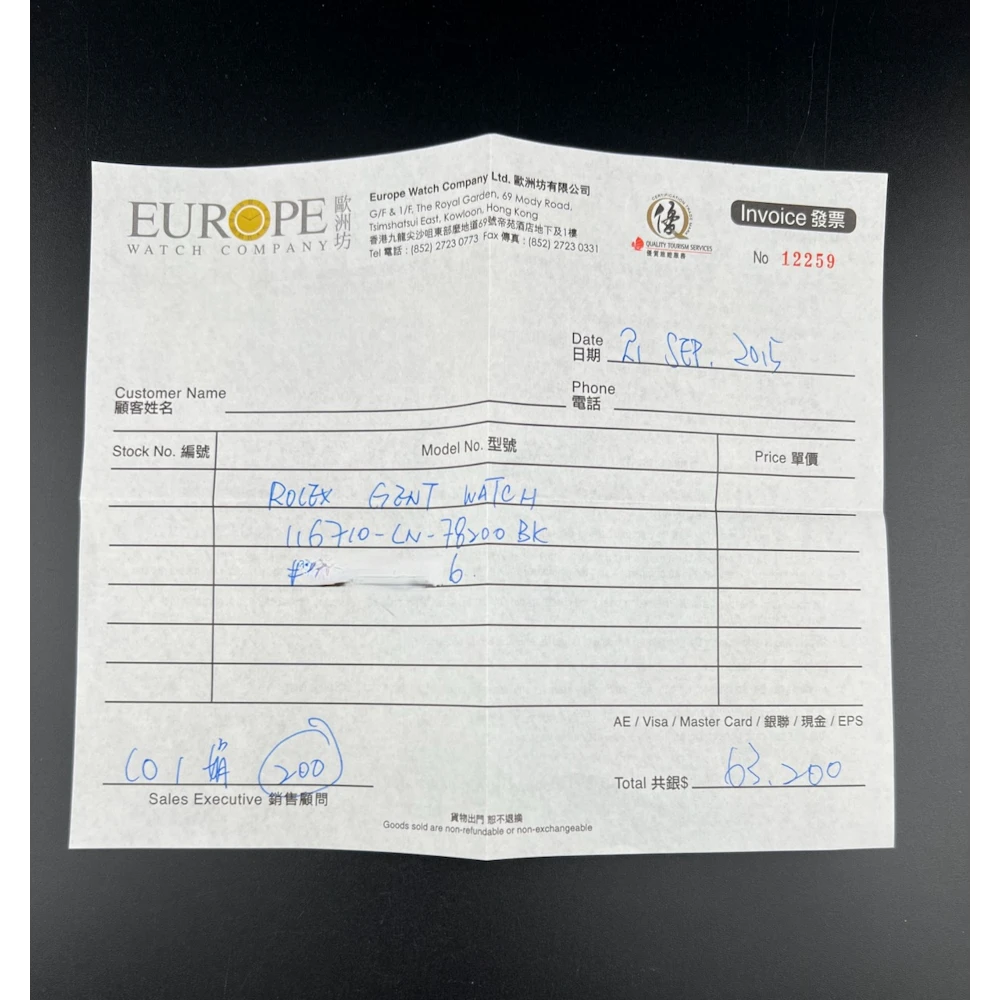 EUROPE 歐洲坊
WATCH COMPANY
Europe Watch Company Ltd. 歐洲坊有限公司
G/F & 1/F, The Royal Garden, 69 Mody Road,
Tsimshatsui East, Kowloon, Hong Kong
香港九龍尖沙咀東部麼地道69號帝苑酒店地下及1樓
Tel 電話 : (852) 2723 0773 Fax 傳真 : (852) 2723 0331
優
QUALITY TOURISM SERVICES
優質旅遊服務
Invoice 發票
No 12259
Date
日期 21 SEP. 2015
Customer Name
顧客姓名
Phone
電話
Stock No. 編號 Model No. 型號 Price 單價
ROLEX GENT WATCH
116710-LN-78200 BK
# 6
AE / Visa / Master Card / 銀聯 / 現金 / EPS
200
Sales Executive 銷售顧問
Total 共銀$ 63,200
貨物出門 恕不退換
Goods sold are non-refundable or non-exchangeable